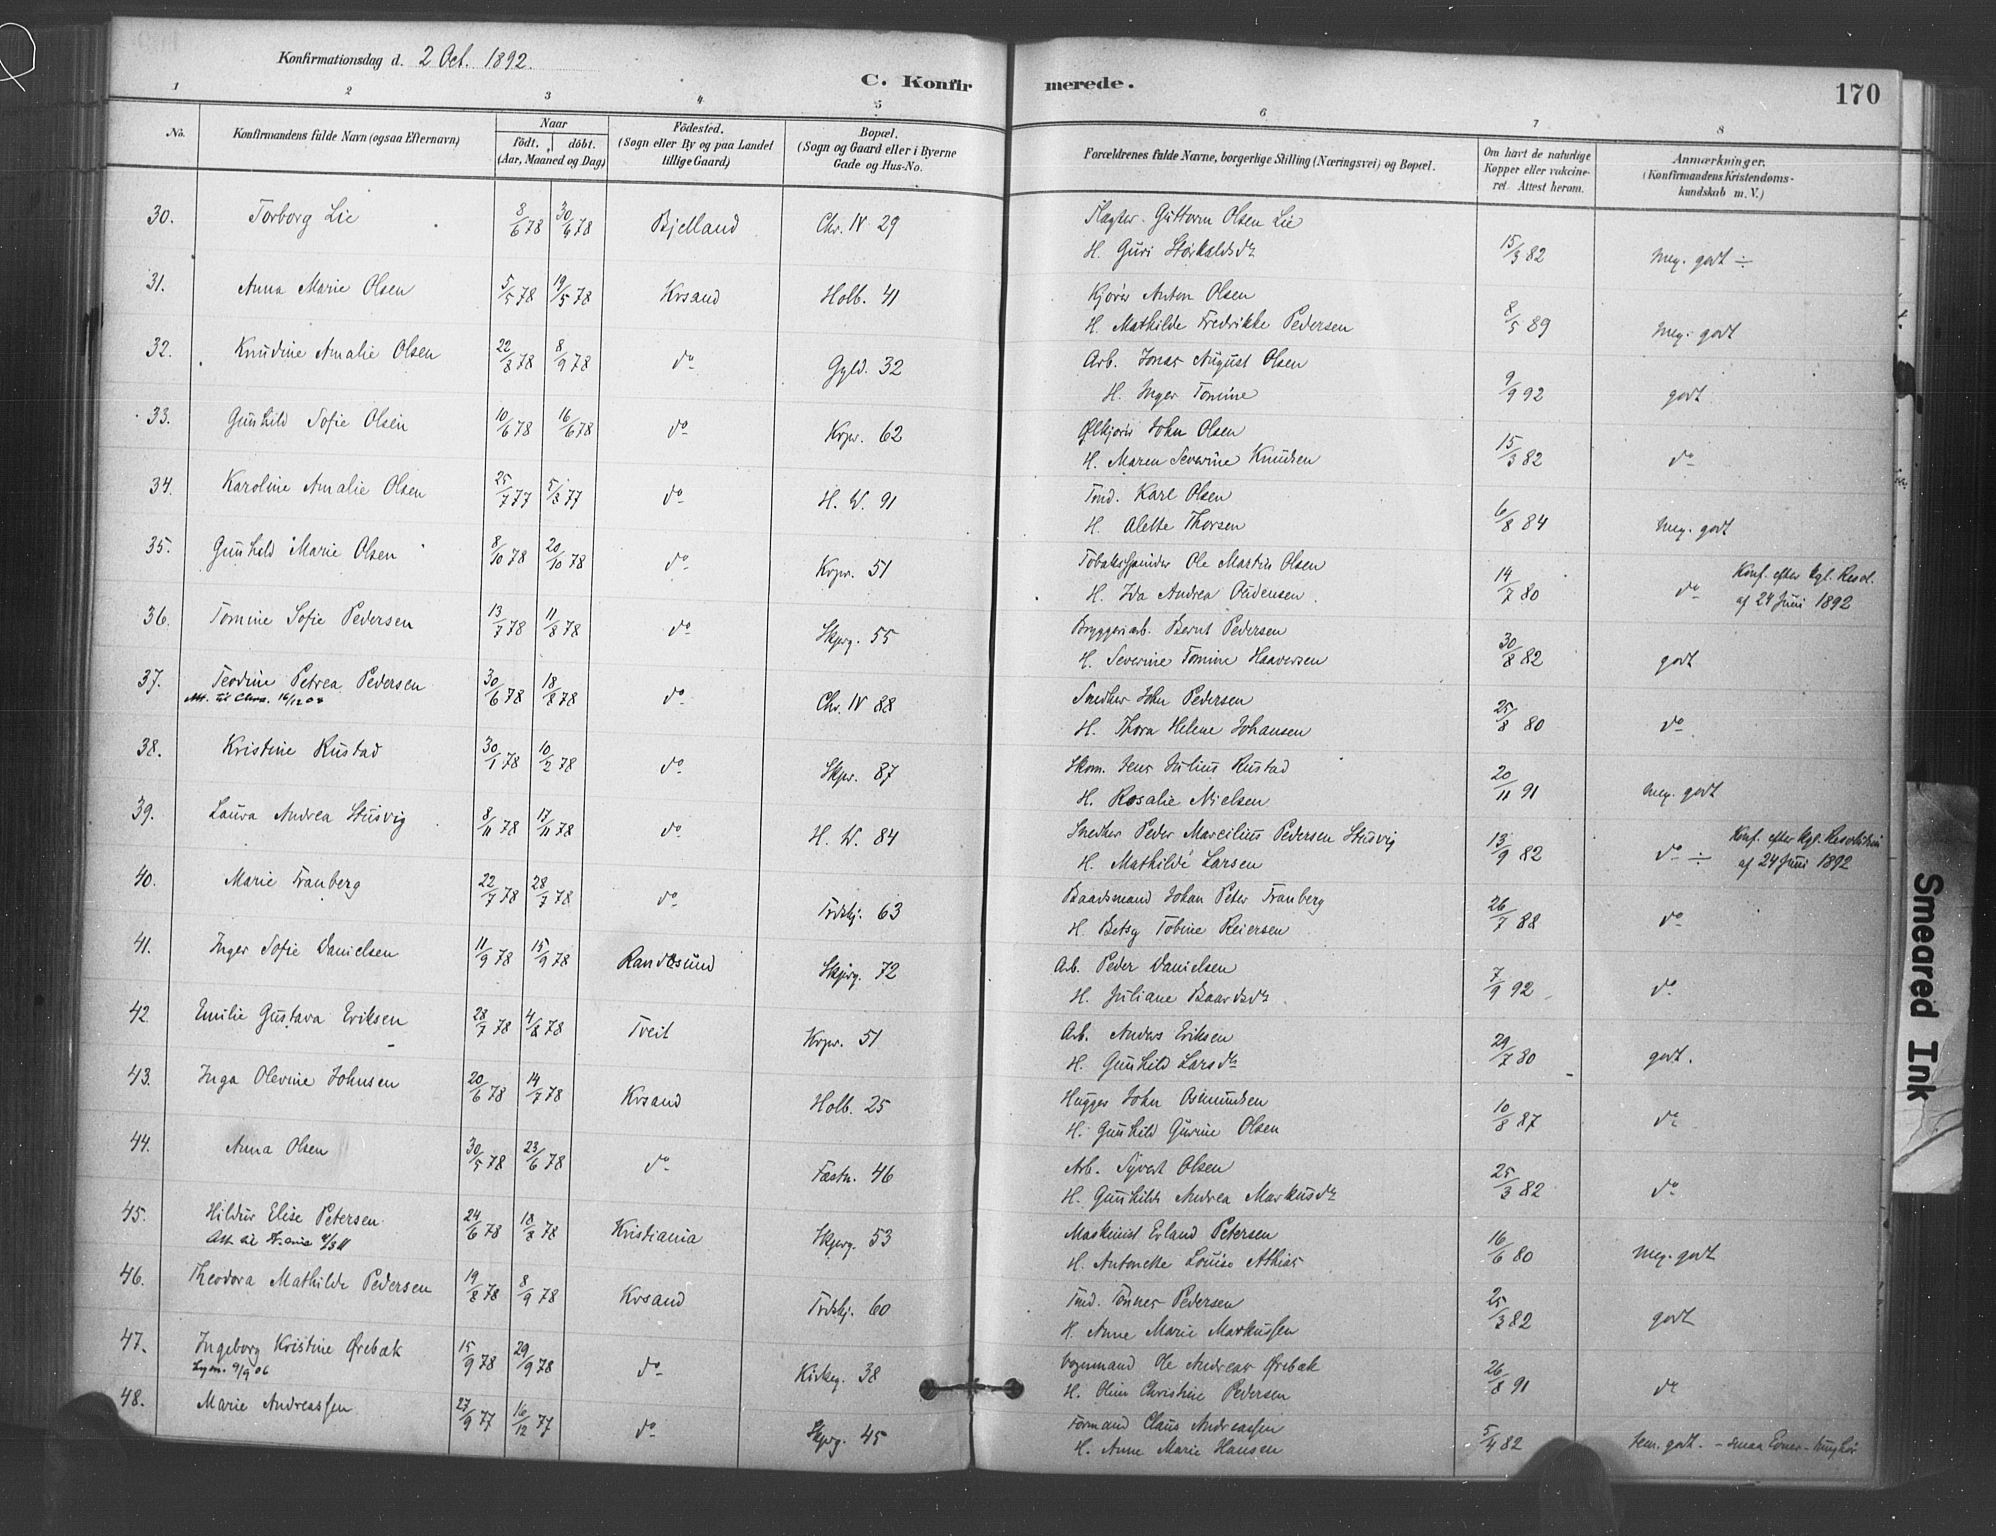 Konfirmationsdag d. 2 Oct. 1892.
C. Konfirmerede.
170
1 2 3 4 5 6 7 8
No. Konfirmandens fulde Navn (ogsaa Efternavn) Naar født. døbt. (Aar, Maaned og Dag) Födested. (Sogn eller By og paa Landet tillige Gaard) Bopæl. (Sogn og Gaard eller i Byerne Gade og Hus-No. Forældrenes fulde Navne, borgerlige Stilling (Næringsvei) og Bopæl. Om havt de naturlige Kopper eller vakcineret. Attest herom. Anmærkninger. (Konfirmandens Kristendomskundskab m. V.)
30. Torborg Lie 8/6 78 30/6 78 Bjelland Chr. IV 29 Flagter. Guttorm Olsen Lie
H. Guri Storkaldsdr 15/3 82 Meg. godt ÷
31. Anna Marie Olsen 5/5 78 19/5 78 Krsand Holb. 41 Kjører Anton Olsen
H. Mathilde Fredrikke Pedersen 8/5 89 Meg. godt
32. Knudine Amalie Olsen 22/8 78 8/9 78 do Gyld. 32 Arb. Jonas August Olsen
H. Inger Tomine 9/9 92 godt
33. Gunhild Sofie Olsen 10/6 78 16/6 78 do Krpr. 62 Ølkjører John Olsen
H. Maren Severine Knudsen 15/3 82 do
34. Karoline Amalie Olsen 25/7 77 5/8 77 do H. W. 91 Tmd. Karl Olsen
H. Alette Thorsen 6/8 84 Meg. godt
35. Gunhild Marie Olsen 8/10 78 20/10 78 do Krpr. 51 Tobaksspinder Ole Martin Olsen
H. Ida Andrea Audensen 14/7 80 do Konf. efter kgl. Resol.
af 24 Juni 1892
36. Tomine Sofie Pedersen 13/7 78 11/8 78 do Skprg. 55 Bryggeriarb. Bernt Pedersen
H. Severine Tomine Haaversen 30/8 82 godt
37. Teodine Petrea Pedersen 30/6 78 18/8 78 do Chr. IV 88 Smedker John Pedersen
Att. til Chra. 16/12 04 H. Thora Helene Johansen 25/8 80 do
38. Kristine Rustad 30/1 78 10/2 78 do Skpr. 87 Skom. Jens Julius Rustad
H. Rosalie Nielsen 20/11 91 Meg. godt
39. Laura Andrea Stusvig 8/11 78 17/11 78 do H. W. 84 Snedker Peder Marcilius Pedersen Stusvig
H. Mathilde Larsen 13/9 82 do ÷ Konf. efter kgl. Resolution
af 24 Juni 1892
40. Marie Tranberg 22/7 78 28/7 78 do Trdskj. 63 Baadsmand Johan Peter Tranberg
H. Betsy Tobine Reiersen 26/7 88 do
41. Inger Sofie Danielsen 11/9 78 15/9 78 Randøsund Skprg. 72 Arb. Peder Danielsen
H. Juliane Baardsdr 7/9 92 do
42. Emilie Gustava Eriksen 28/7 78 4/8 78 Tveit Krpr. 51 Arb. Anders Eriksen
H. Gunhild Larsdr 29/7 80 godt.
43. Inga Olevine Johnsen 20/6 78 14/7 78 Krsand Holb. 25 Hugger John Osmundsen
H. Gunhild Gurine Olsen 10/8 87 do
44. Anna Olsen 30/5 78 23/6 78 do Fæstn. 46 Arb. Syvert Olsen
H. Gunhilde Andrea Markusdr 25/3 82 do
45. Hildur Elise Petersen 24/6 78 18/8 78 Kristiania Skprg. 53 Maskinist Erland Petersen
H. Antonette Louise Athias 16/6 80 Meg. godt
46. Theodora Mathilde Pedersen 19/8 78 8/9 78 Krsand Trdskj. 60 Tmd. Tønnes Pedersen
H. Anne Marie Markussen 25/3 82 godt
47. Ingeborg Kristine Ørebæk 15/9 78 29/9 78 do Kirkeg. 38 Vognmand Ole Andreas Ørebæk
9/9 06 H. Oline Christine Pedersen 26/8 91 do
48. Marie Andreassen 27/9 77 16/12 77 do Skprg. 45 Formand Claus Andreassen
H. Anne Marie Hansen 5/4 82 Tem. godt. - smaa Evner -
Smeared Ink